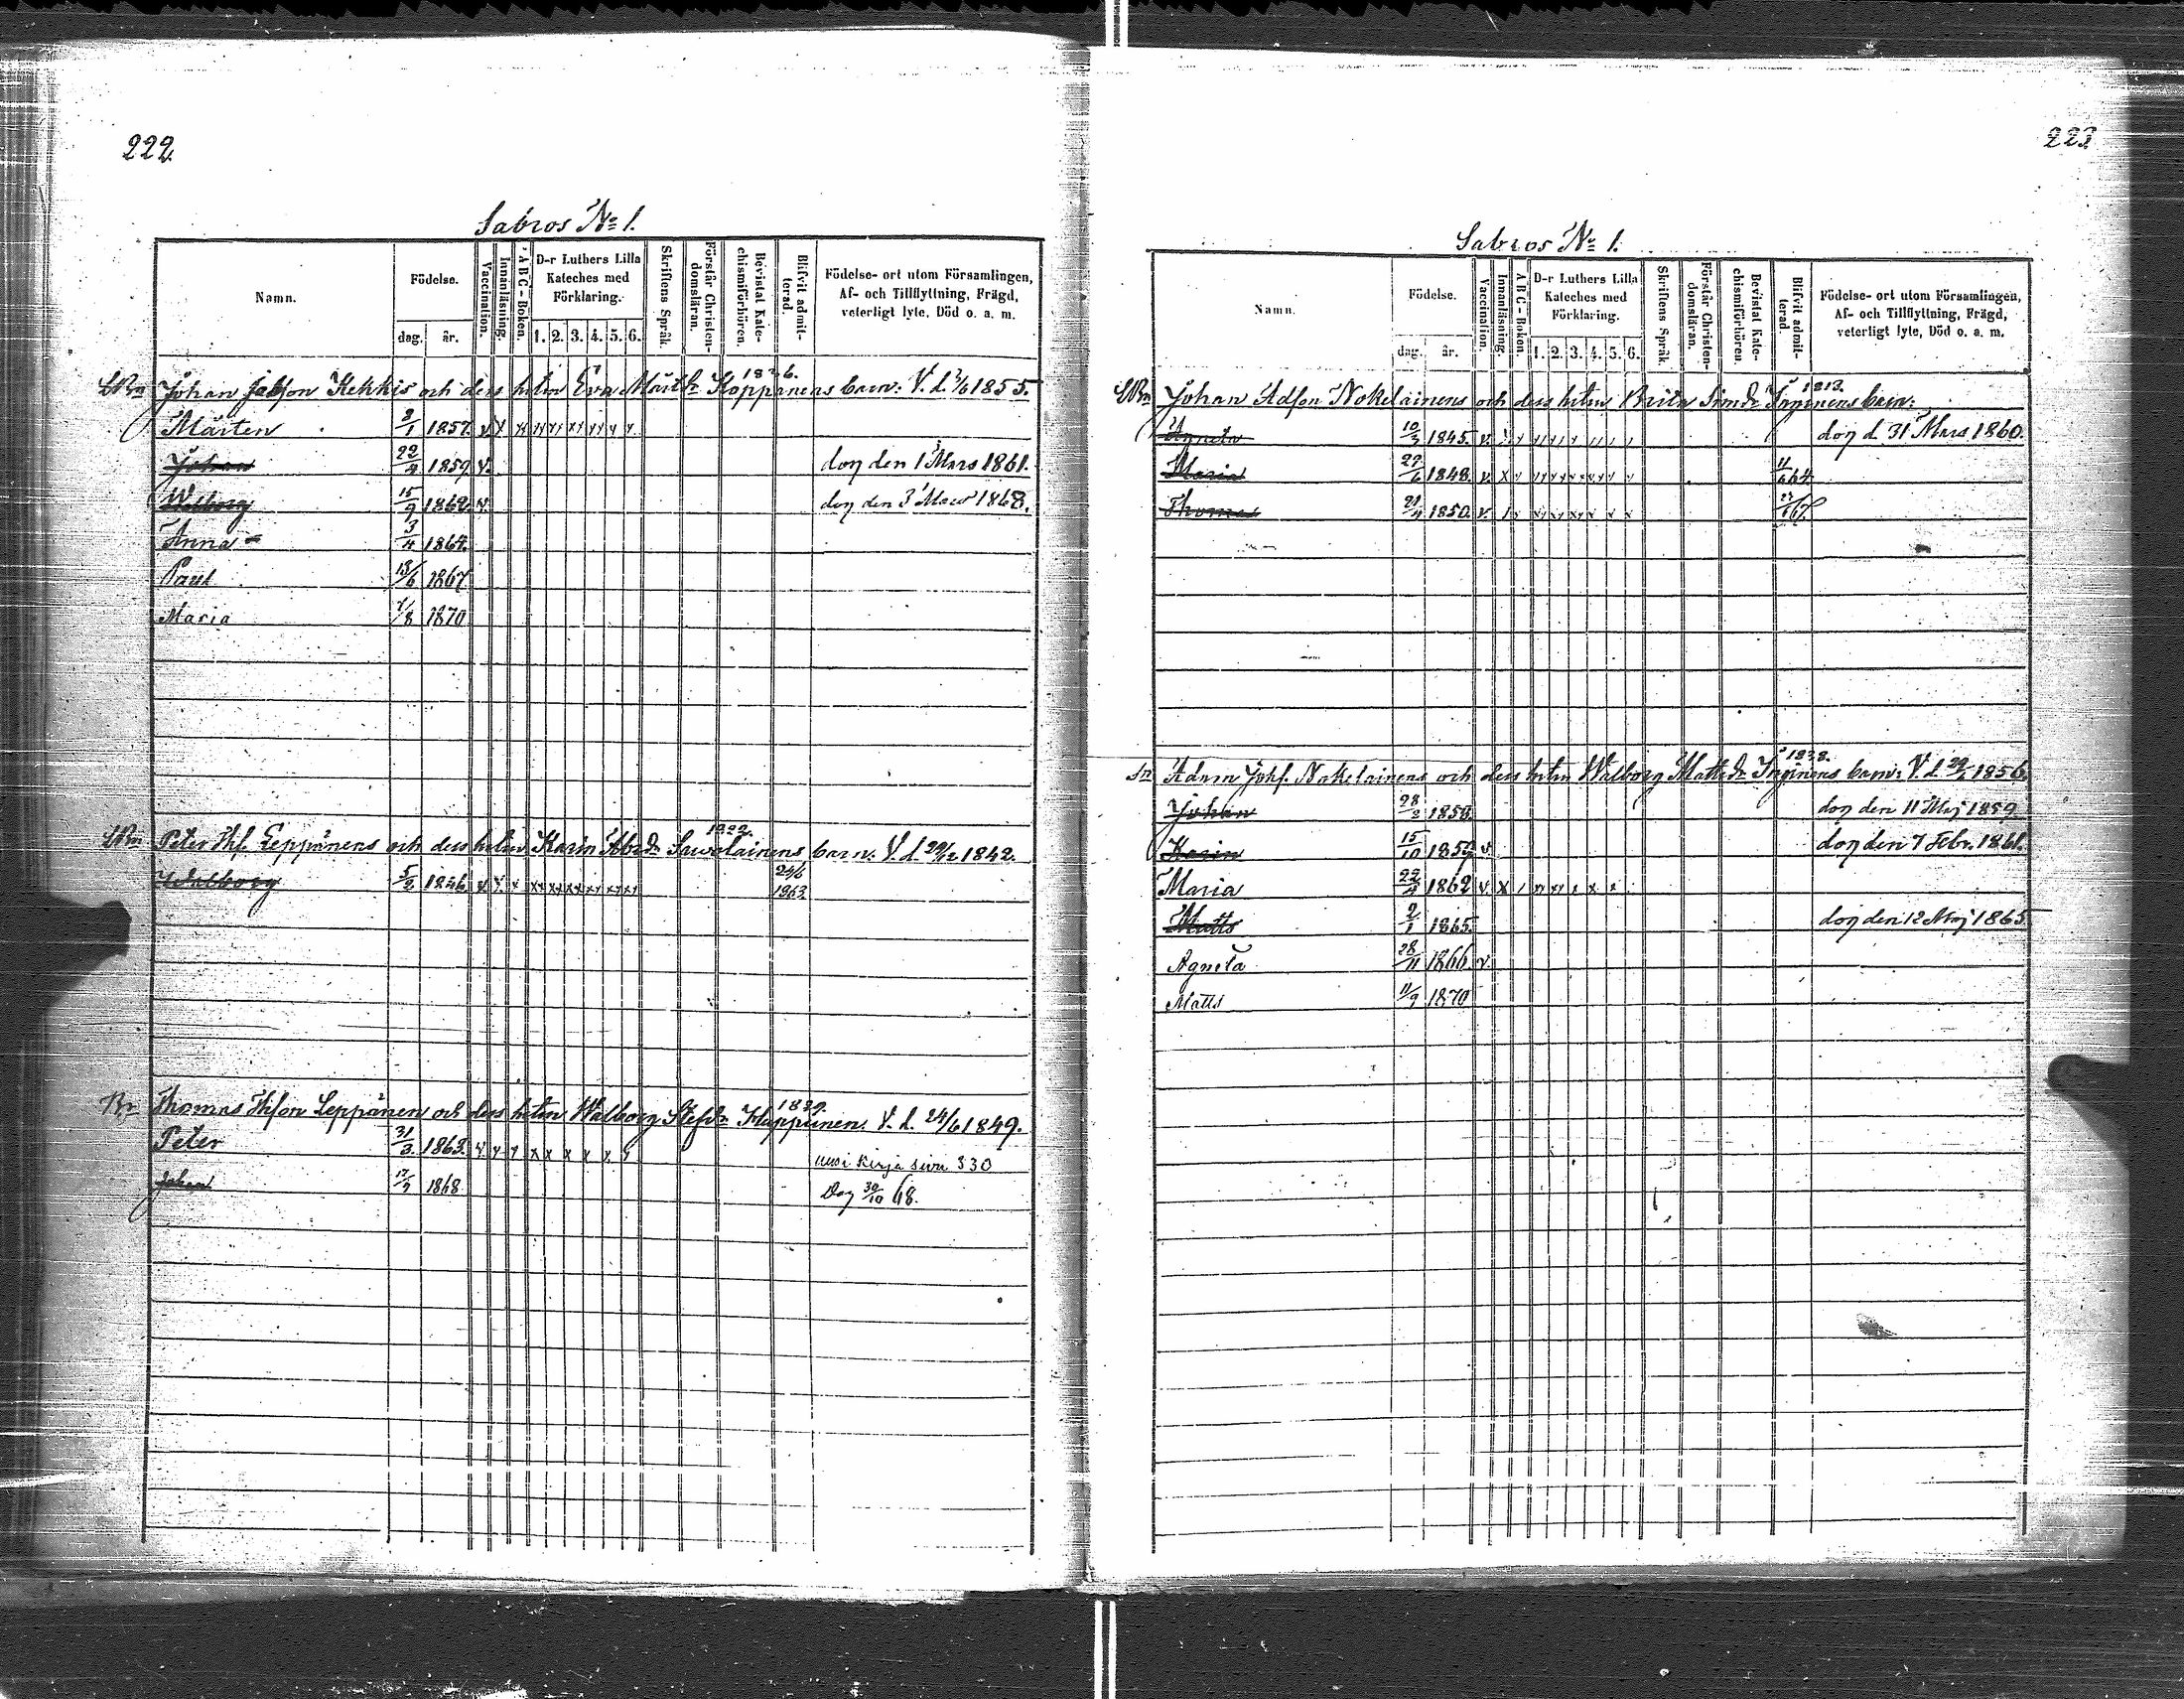 222
Sabros No 1.
Namn.
Födelse.
dag.
år.
Vaccination.
Innanläsning.
A B C - Boken.
D-r Luthers Lilla
Kateches med
Förklaring.
1. 2. 3. 4. 5. 6.
Skriftens Språk.
Förstår Christen-
domsläran.
Bevistat Kate-
chismiförhören.
Blifvit admit-
terad.
Födelse- ort utom Församlingen,
Af- och Tillflyttning, Frägd,
veterligt lyte, Död o. a. m.
Johan Jakson Kekkis och dess hstru Eva Märtsdr Koppanens barn: V. d. 1855.
Mårten 2/1 1857. v
Johan 22/4 1859 v. dog den 1 Mars 1861.
Walborg 15/9 1862. v. dog den 3 Mars 1868.
Anna 3/4 1864.
Paul 18/6 1867
Maria 7/8 1870
1822.
Peter Thf. Leppänens och dess hstru Karin Abrdr Sawolainens barn: V. d. 29/12 1842.
Walborg 5/2 1846. v x x xx xx xx xx xx xx 24/6 1863
1829.
Thomas Thfson Leppänen och dess hstru Walborg Stefdr V. d. 24/6 1849.
Peter 31/3 1863. v v v x x x x x x uusi kirja sivu 330
Johan 17/7 1868 Dog 30/10 68.
223
Sabros No 1.
Namn.
Födelse.
dag.
år.
Vaccination.
Innanläsning.
A B C - Boken.
D-r Luthers Lilla
Kateches med
Förklaring.
1. 2. 3. 4. 5. 6.
Skriftens Språk.
Förstår Christen-
domsläran.
Bevistat Kate-
chismiförhören.
Blifvit admit-
terad.
Födelse- ort utom Församlingen,
Af- och Tillflyttning, Frägd,
veterligt lyte, Död o. a. m.
1813.
Johan Adfson Nokelainens och dess hstru Brita Simdr Inginens barn:
Agneta 10/3 1845. v. dog d. 31 Mars 1860.
Maria 27/6 1848. v. 64
Thomas 21/4 1850. v. 67
1838.
Adam Johf. Nokelainens och dess hstru Walborg Mattsdr Inginens barn: V. d. 1856.
Johan 28/2 1858. dog den 11 Maj 1859
Karin 15/10 1859 v. dog den 7 Febr. 1861.
Maria 22/4 1862 v x
Matts 2/1 1865. dog den 12 Maj 1865
Agneta 28/11 1866 v.
Matts 11/9 1870